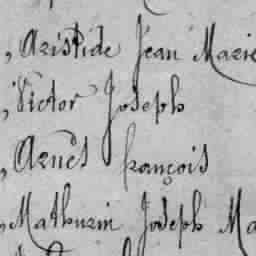 , Aristide Jean Marie
, Victor Joseph
, Aruel françois
, Mathurin Joseph Ma